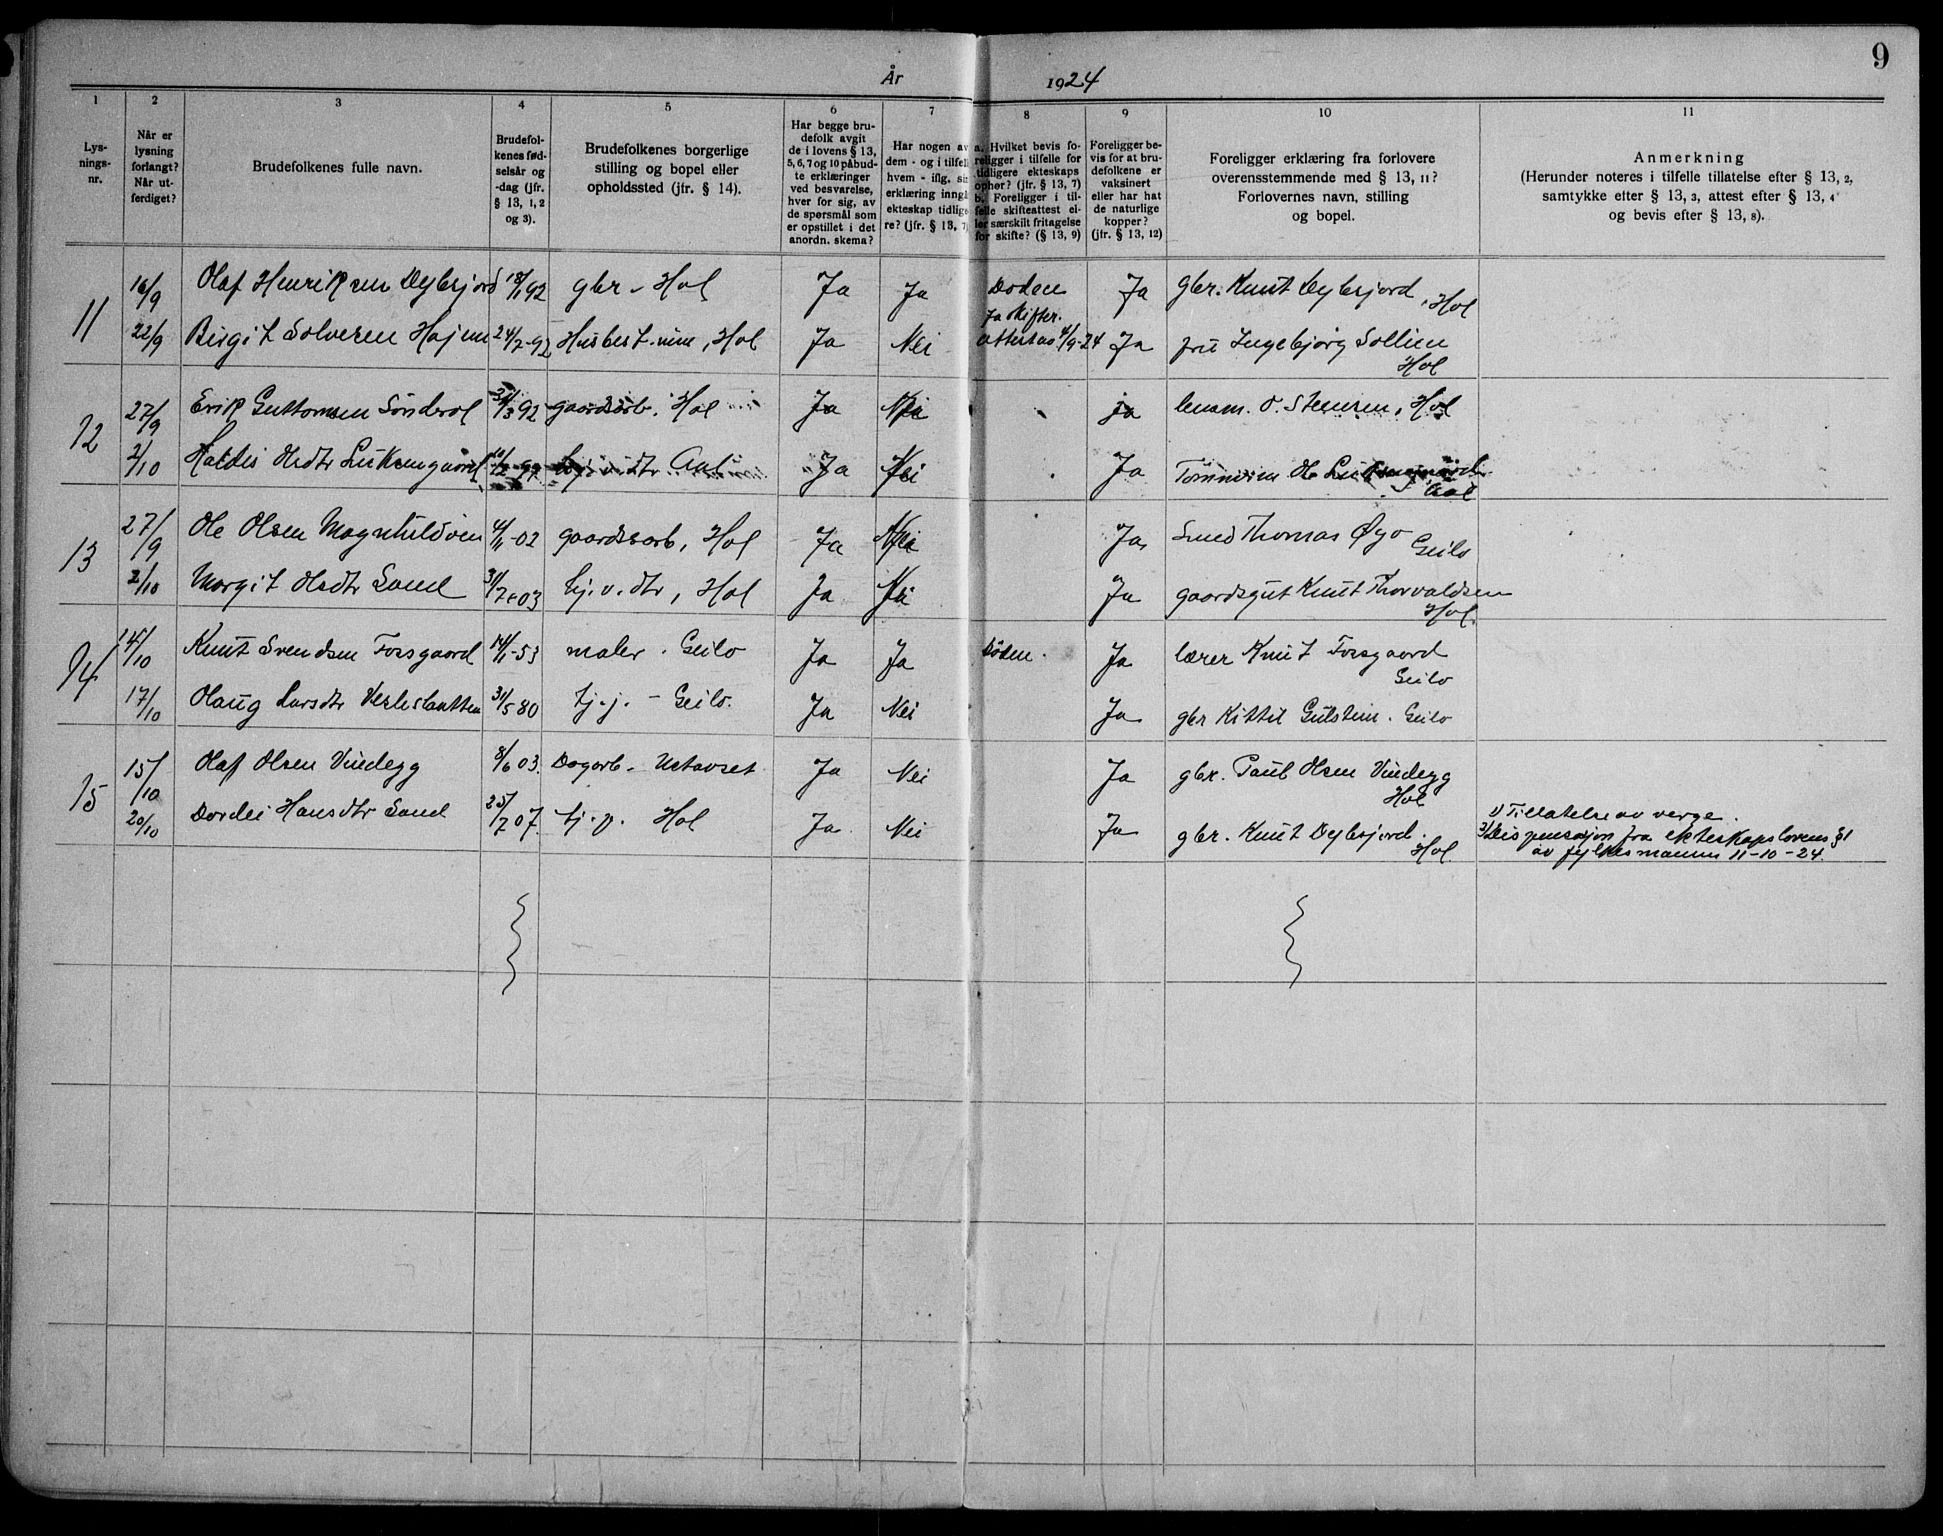 9
År 1924
1 2 3 4 5 6 7 8 9 10 11
Lys-
nings-
nr.
Når er
lysning
forlangt?
Når ut-
ferdiget?
Brudefolkenes fulle navn.
Brudefol-
kenes fød-
selsår og
-dag (jfr.
§ 13, 1, 2
og 3).
Brudefolkenes borgerlige
stilling og bopel eller
opholdssted (jfr. § 14).
Har begge bru-
defolk avgit
de i lovens § 13,
5, 6, 7 og 10 påbud-
te erklæringer
ved besvarelse,
hver for sig, av
de spørsmål som
er opstillet i det
anordn. skema?
Har nogen av
dem - og i tilfelle
hvem - iflg. sin
erklæring inngå
ekteskap tidlige
re? (jfr. § 13, 7)
a. Hvilket bevis fo-
religger i tilfelle for
tidligere ekteskaps
ophør? (jfr. § 13, 7)
b. Foreligger i til-
felle skifteattest el-
ler særskilt fritagelse
for skifte? (§ 13, 9)
Foreligger be-
vis for at bru-
defolkene er
vaksinert
eller har hat
de naturlige
kopper?
(jfr. § 13, 12)
Foreligger erklæring fra forlovere
overensstemmende med § 13, 11?
Forlovernes navn, stilling
og bopel.
Anmerkning
(Herunder noteres i tilfelle tillatelse efter § 13, 2,
samtykke etter § 13, 3, attest efter § 13, 4
og bevis efter § 13, 8).
11 16/9 Olaf Henriksen Dybsjord 18/1 92 gbr - Hol Ja Ja Døden Ja gbr. Knut Dybsjord, Hol
Ja skifte-
22/9 Birgit Solvesen Hajem 24/2-92 Husbest.inne, Hol Ja Nei attest av 4/9-24 Ja fru Ingebjørg Sollien
Hol
12 27/9 Erik Guttormsen Sønderol /3 92 gaardsarb. Hol Ja Nei ja lensm. O. Steensen, Hol
2/10 Haldis Olsdtr Leksengaard 10/12-97 dtr Aal Ja Nei Ja Tømmerm Ole
Aal
13 27/9 Ole Olsen Magnhildøen 4/11-02 gaardsarb, Hol Ja Nei Ja Smed Thomas Øyo
Geilo
2/10 Margit Olsdtr Sand 31/7-03 hj.v. dtr, Hol Ja Nei Ja gaardsgut Knut Thorvaldsen
Hol.
14 14/10 Knut Svendsen Forsgaard 14/11-53 maler - Geilo Ja Ja Døden. Ja lærer Knut Forsgaard
Geilo
17/10 Olaug Larsdtr Vesleslaatten 31/5 80 tj.j. - Geilo. Ja Nei Ja gbr Kittil Gulstein. Geilo
15 15/10 Olaf Olsen Vindegg 8/6 03. Dagarb - Ustaoset Ja Nei Ja gbr. Paul Olsen Vindegg
Hol
20/10 Dordei Hansdtr Sand 25/7 07. tj.p. Hol Ja Nei Ja gbr. Knut Dybsjord.
Hol
1) Tillatelse av verge.
2) Dispensasjon fra ekteskapslovens §1
av fylkesmannen 11-10-24.